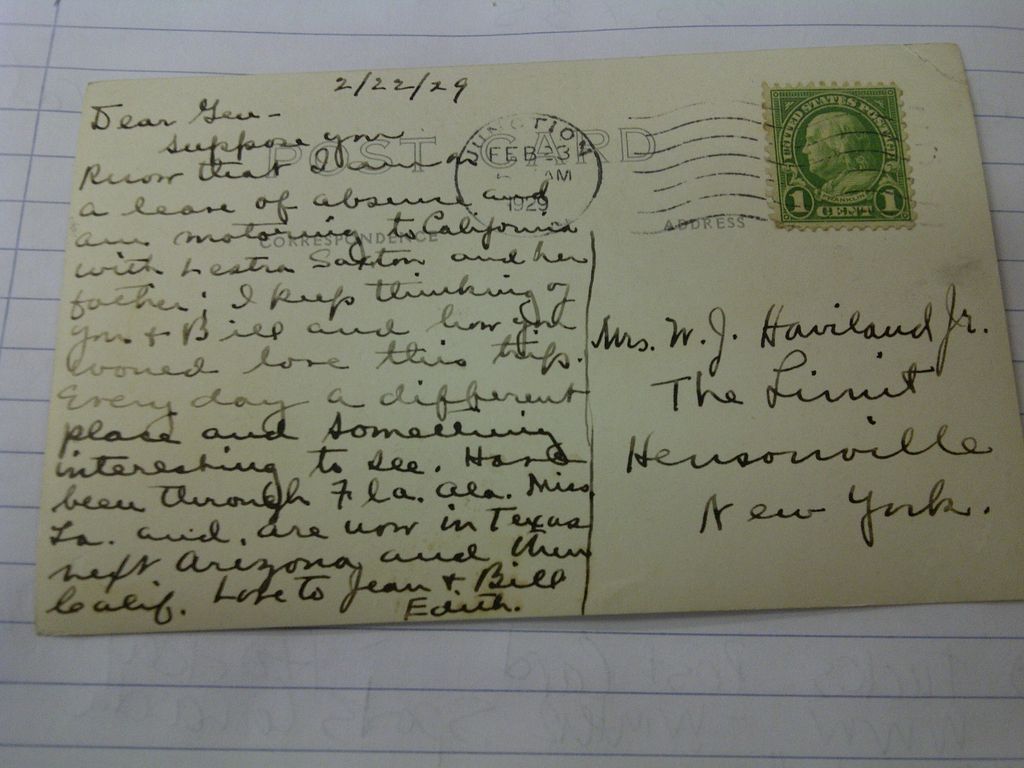 2/22/29
Dear Gen-
suppose you
know that I am on
a leave of absence and
am motoring to California
with Lestra Saxton and her
father; I keep thinking of
you & Bill and how you
would love this trip.
Every day a different
place and something
interesting to see. Have
been through Fla. Ala. Miss.
La. and, are now in Texas
next Arizona and then
Calif. Love to Jean & Bill
Edith.
POST CARD
CORRESPONDENCE
ADDRESS
JUNCTION
FEB 23
AM
1929
UNITED STATES POSTAGE
FRANKLIN
1 CENT 1
Mrs. W. J. Haviland Jr.
The Limit
Hensonville
New York.